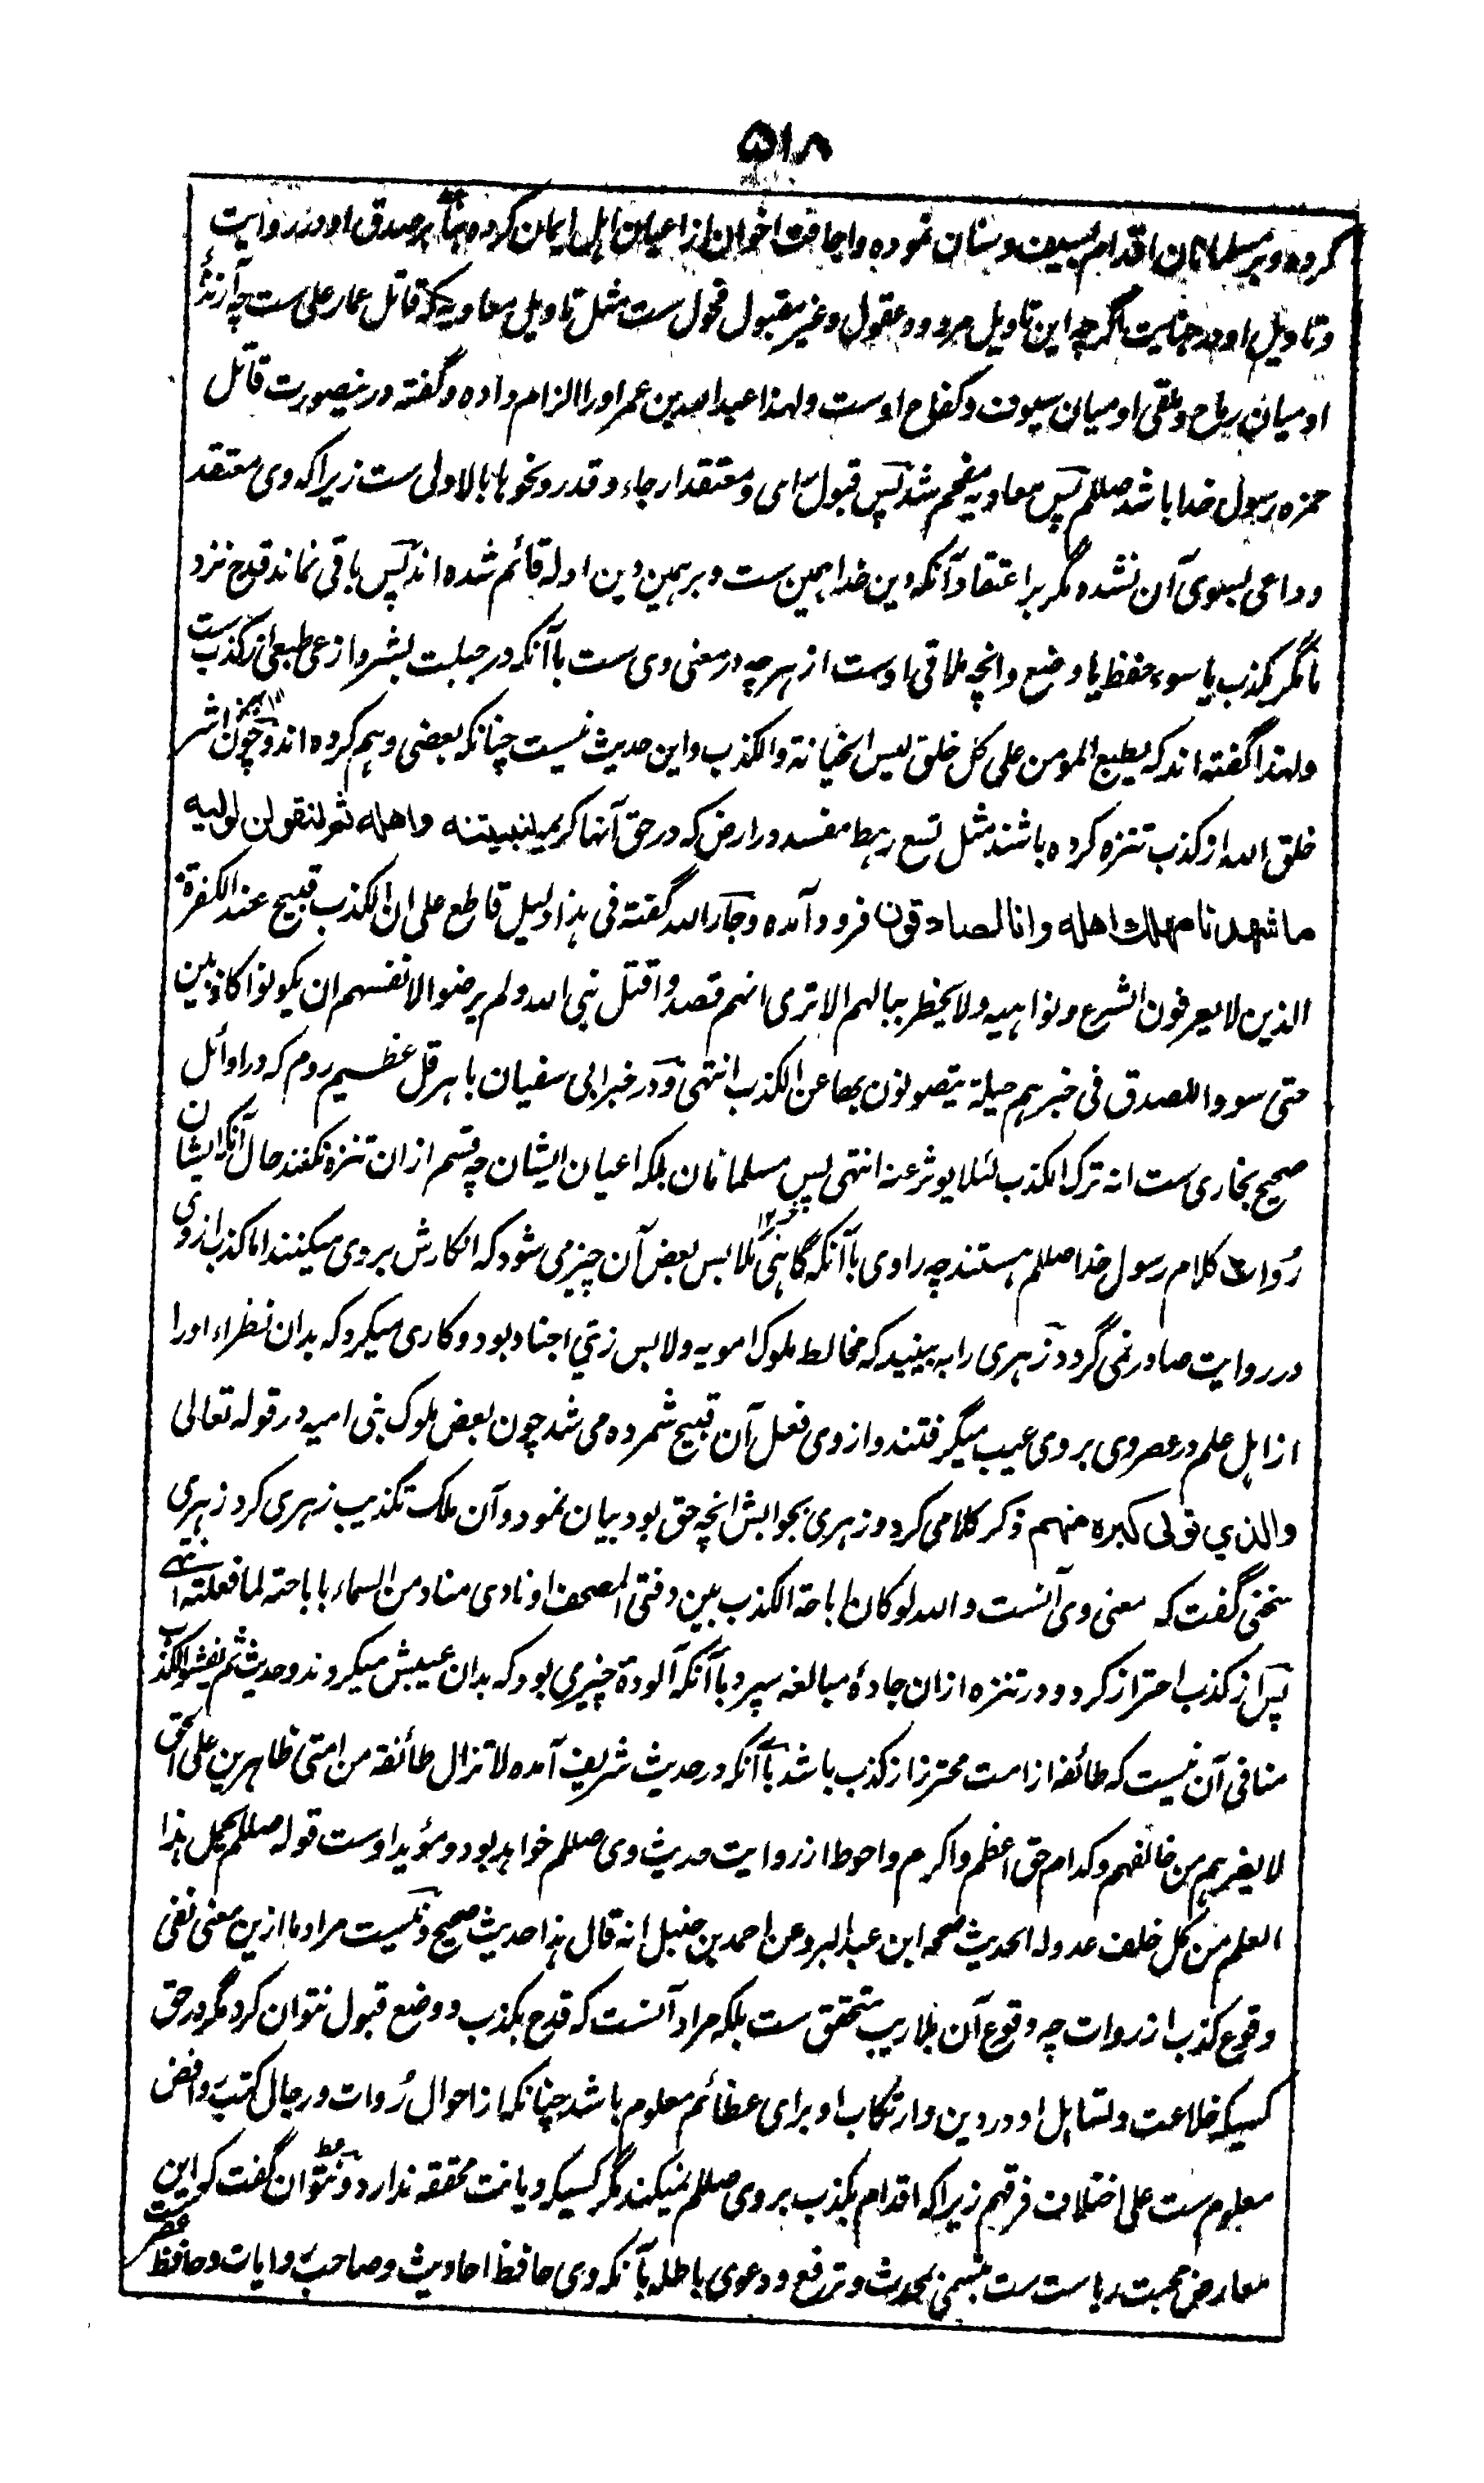 ۵۱۸
کرده و بر مسلمانان اقدام بسیف و سنان نموده و اخافت اخوان از اعیان اهل ایمان کرده بنا بر صدق او در روایت
و تاویل او در جنایت اگرچه این تاویل مردود عقول و غیر مقبول فحول ست مثل تاویل معاویه که قاتل عمار علی ست چه آرندهٔ
او میان رماح و ملقی او میان سیوف و کفاح اوست ولهذا عبد الله بن عمر او را الزام داده و گفته درینصورت قاتل
حمزه رسول خدا باشد صللم پس معاویه مفحم شد پس قبول رای و معتقد ارجاء و قدر و نحوها بالاولی ست زیراکه وی معتقد
و داعی بسوی آن نشده مگر بر اعتقاد آنکه دین خدا همین ست و بر همین دین ادله قائم شده اند پس باقی نماند قدح نزد
ما مگر بکذب یا سوء حفظ یا وضع و انچه ملاقی اوست از هرچه در معنی وی ست با آنکه در جبلت بشر وازعی طبعی از کذب ست
ولهذا گفته اند که یطبع المومن علی کل خلق لیس الخیانة والکذب و این حدیث نیست چنانکه بعضی وهم کرده اند و چون اشر
خلق الله از کذب تنزه کرده باشند مثل تسع رهط مفسد در ارض که در حق آنها کریمه لنبیتنه واهله ثم لنقولن لولیه
ما شهدنا مهلك اهله وانا لصادقون فرود آمده و جار الله گفته فی هذا دلیل قاطع علی ان الکذب قبیح عند الکفرة
الذین لا یعرفون الشرع و نواهیه ولا یخطر ببالهم الا تری انهم قصدوا قتل نبی الله ولم یرضوا لانفسهم ان یکونوا کاذبین
حتی سووا للصدق فی خبرهم حیلة یتصونون بها عن الکذب انتهی و در خبر ابی سفیان با هرقل عظیم روم که در اوائل
صحیح بخاری ست انه ترک الکذب لئلا یوثر عنه انتهی پس مسلمانان بلکه اعیان ایشان چه قسم ازان تنزه نکنند حال آنکه ایشان
رُوات کلام رسول خدا صللم هستند چه راوی با آنکه گاهی ملابس بعض آن چیز می شود که انکارش بر وی میکنند اما کذب از وی
در روایت صادر نمی گردد زهری را به بینید که مخالط ملوک امویه و لابس زی اجناد بود و کاری میکرد که بدان نظراء او را
از اهل علم در عصر وی بر وی عیب میگرفتند و از وی فعل آن قبیح شمرده می شد چون بعض ملوک بنی امیه در قوله تعالی
والذي تولی کبره منهم ذکر کلامی کرد و زهری بجوابش انچه حق بود بیان نمود و آن ملک تکذیب زهری کرد زهری
سخنی گفت که معنی وی آنست والله لو کان اباحة الکذب بین دفتی المصحف او نادی مناد من السماء باباحته لما فعلته انتهی
پس از کذب احتراز کرد و در تنزه ازان جادهٔ مبالغه سپرد با آنکه آلودهٔ چیزی بود که بدان عیبش میکردند و حدیث ثم یفشو الکذب
منافی آن نیست که طائفه از امت محترز از کذب باشد با آنکه در حدیث شریف آمده لا تزال طائفة من امتی ظاهرین علی الحق
لا یضرهم من خالفهم و کدام حق اعظم و اکرم و احوط از روایت حدیث وی صللم خواهد بود و مؤید اوست قوله صللم یحمل هذا
العلم من کل خلف عدوله الحدیث صححه ابن عبد البر و عن احمد بن حنبل انه قال هذا حدیث صحیح و نیست مراد ما ازین معنی نفی
وقوع کذب از روات چه وقوع آن بلاریب متحقق ست بلکه مراد آنست که قدح بکذب و وضع قبول نتوان کرد مگر در حق
کسیکه خلاعت و تساهل او در دین و ارتکاب او برای عظائم معلوم باشد چنانکه از احوال رُوات و رجال کتب روافض
معلوم ست علی اختلاف فرقهم زیراکه اقدام بکذب بر وی صللم نمیکند مگر کسیکه دیانت محققه ندارد و نتوان گفت که این
معارض محبت ریاست ست بتسمی بمحدث و ترفع و دعوی باطله بآنکه وی حافظ احادیث و صاحب روایات و حافظ عصر ست